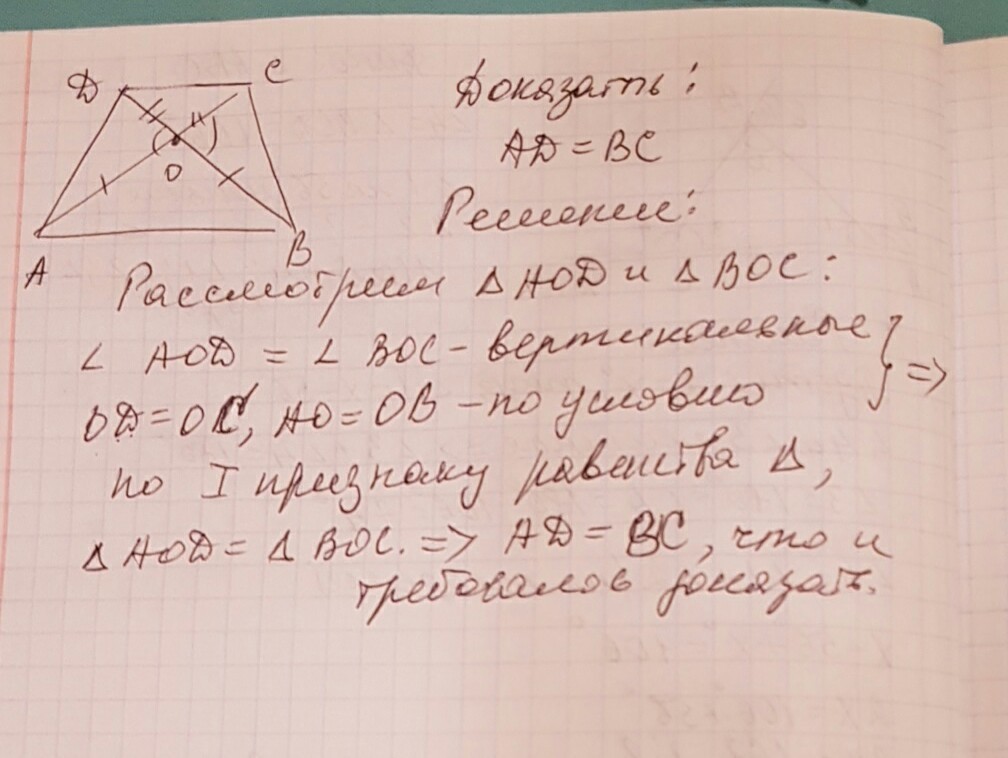 D C
O
A B
Доказать:
AD = BC
Решение:
Рассмотрим Δ AOD и Δ BOC:
∠ AOD = ∠ BOC - вертикальные
OD = OC, AO = OB - по условию } =>
по I признаку равенства Δ,
Δ AOD = Δ BOC. => AD = BC, что и
требовалось доказать.